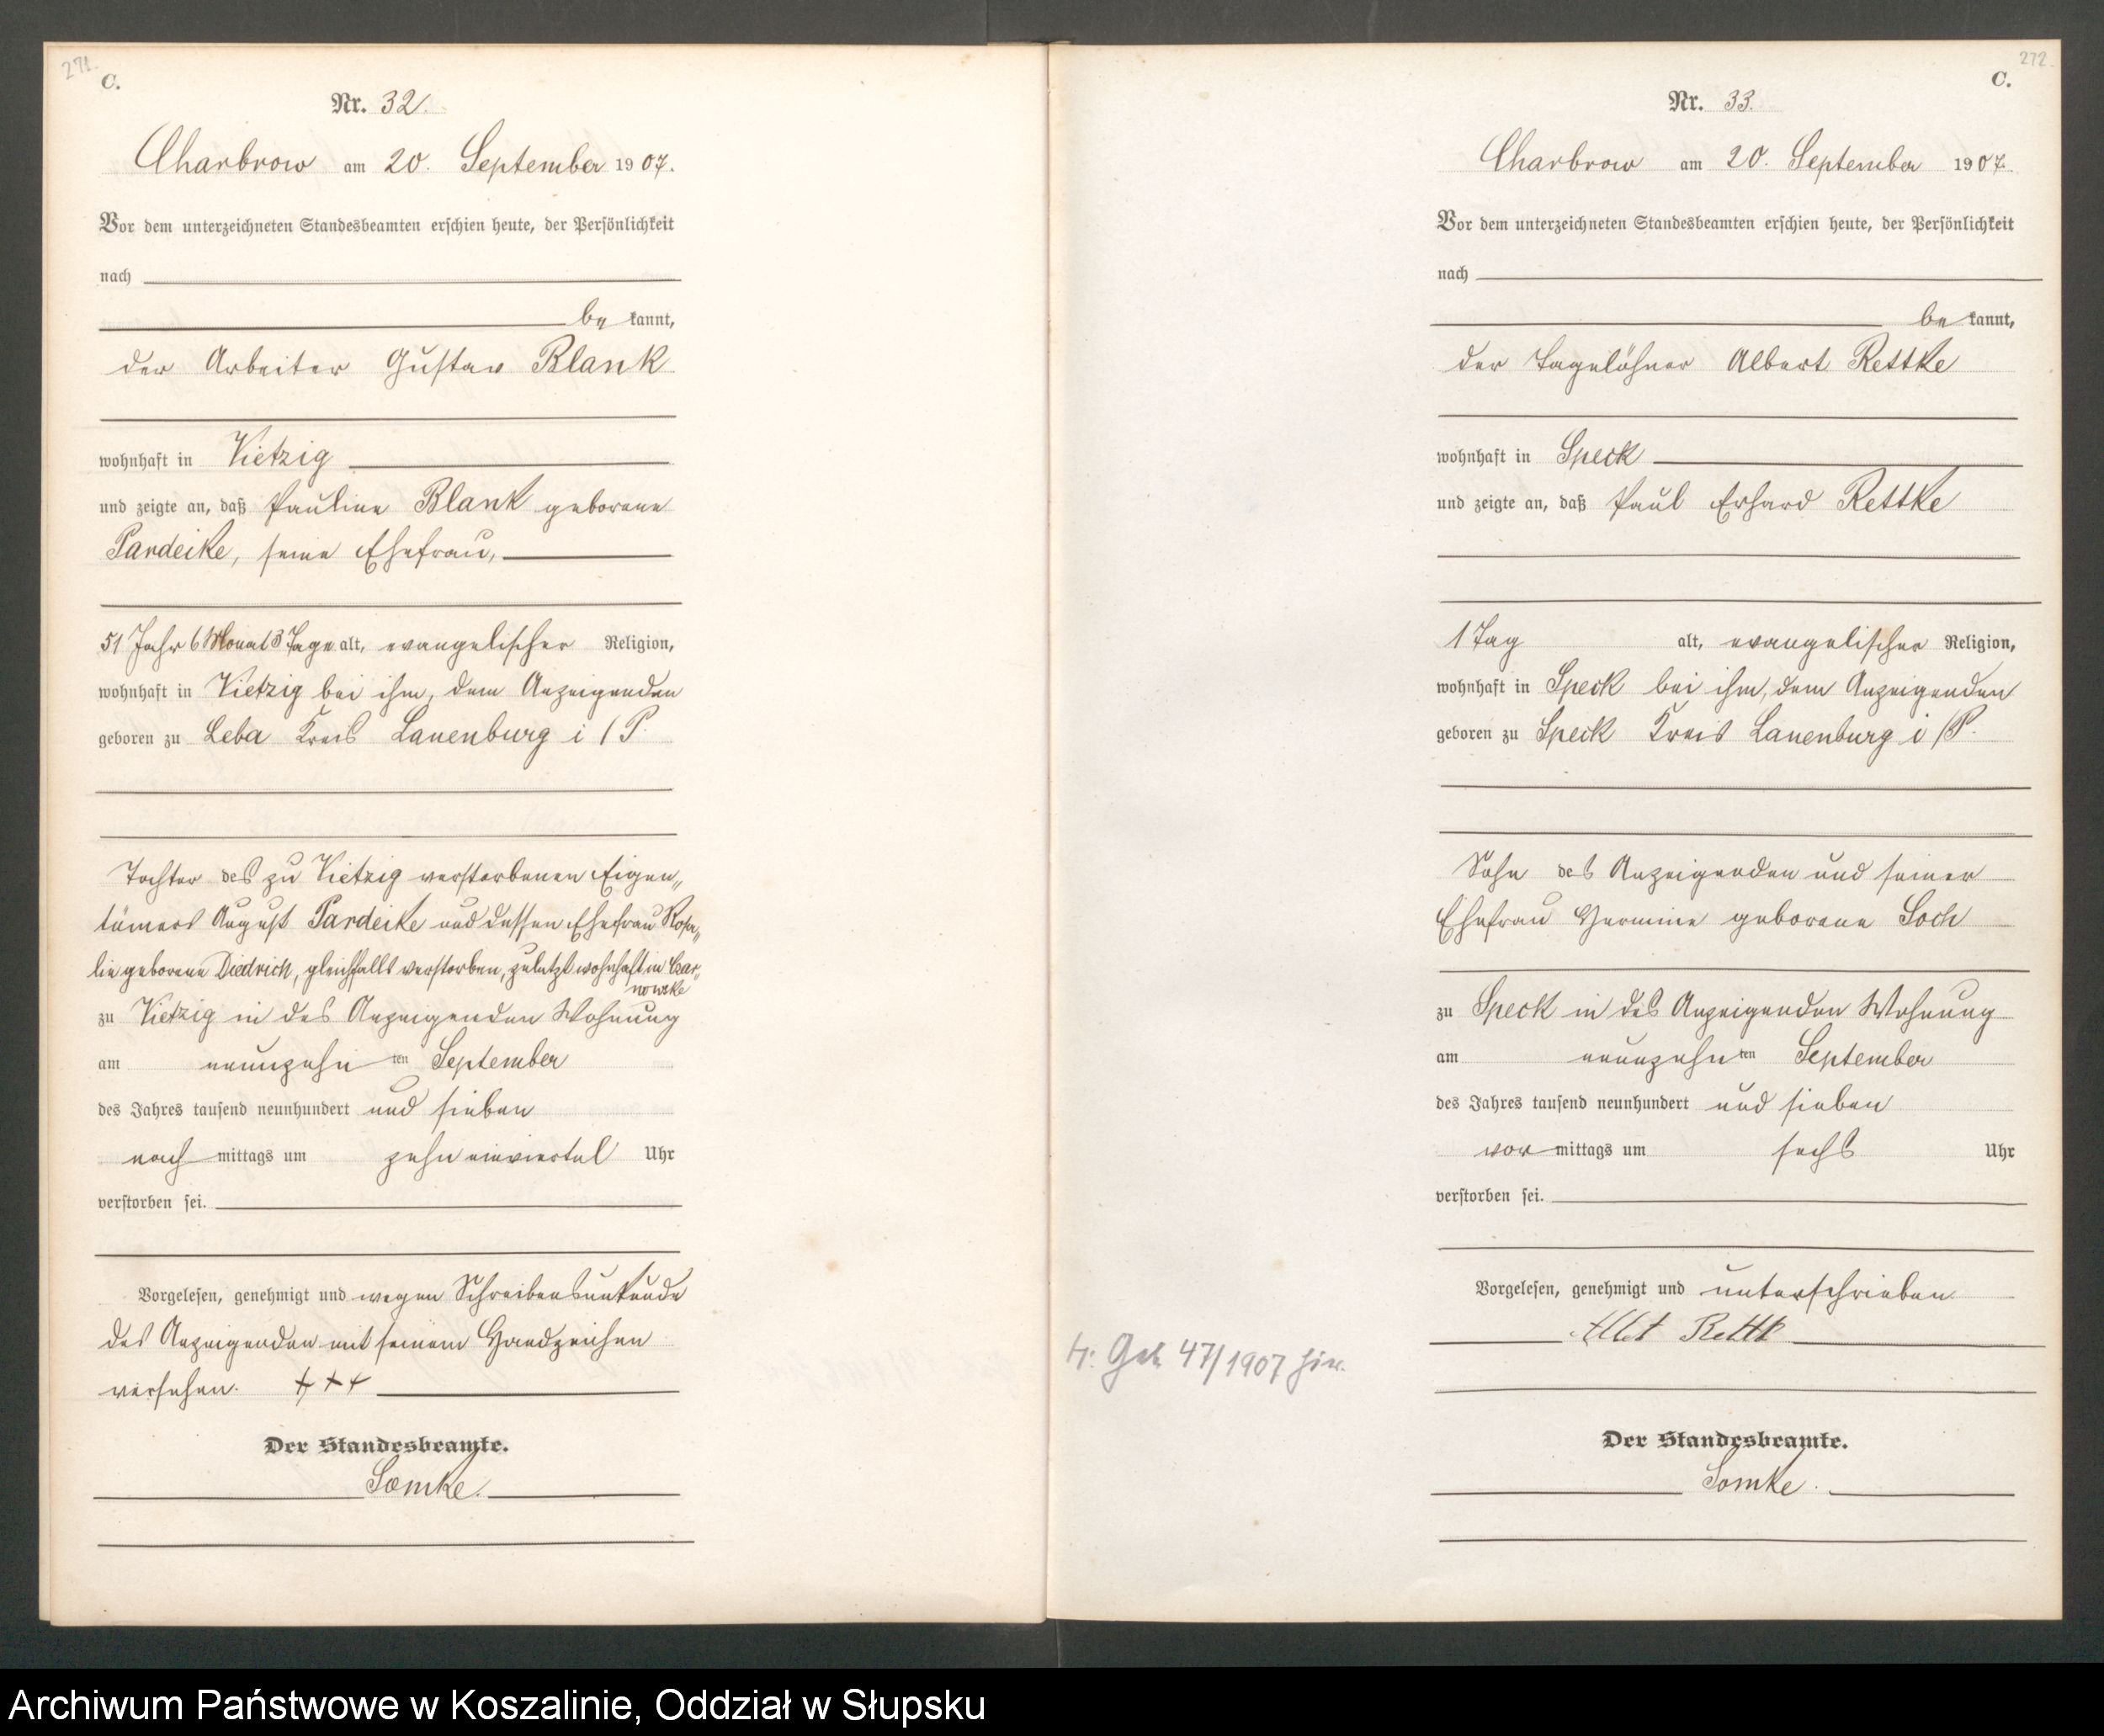 271.
C.
Nr. 32.
Charbrow am 20. September 1907.
Vor dem unterzeichneten Standesbeamten erschien heute, der Persönlichkeit
nach
be kannt,
der Arbeiter Gustav Blank
wohnhaft in Vietzig
und zeigte an, daß Pauline Blank geborene
Pardeike, seine Ehefrau,
51 Jahr 6 Monat 3 Tage alt, evangelischer Religion,
wohnhaft in Vietzig bei ihm, dem Anzeigenden
geboren zu Leba Kreis Lauenburg i/P.
Tochter des zu Vietzig verstorbenen Eigen„
tümers August Pardeike und dessen Ehefrau Rosa„
lie geborene Diedrich, gleichfalls verstorben, zuletzt wohnhaft in Czar„
nowske
zu Vietzig in des Anzeigenden Wohnung
am neunzehn ten September
des Jahres tausend neunhundert und sieben
nach mittags um zehn einviertel Uhr
verstorben sei.
Vorgelesen, genehmigt und wegen Schreibensunkunde
des Anzeigenden mit seinem Handzeichen
versehen. +++
Der Standesbeamte.
Somke.
272.
C.
Nr. 33.
Charbrow am 20. September 1907.
Vor dem unterzeichneten Standesbeamten erschien heute, der Persönlichkeit
nach
be kannt,
der Tagelöhner Albert Rettke
wohnhaft in Speck
und zeigte an, daß Paul Erhard Rettke
1 Tag alt, evangelischer Religion,
wohnhaft in Speck bei ihm, dem Anzeigenden
geboren zu Speck Kreis Lauenburg i/P.
Sohn des Anzeigenden und seiner
Ehefrau Hermine geborene Soch
zu Speck in des Anzeigenden Wohnung
am neunzehn ten September
des Jahres tausend neunhundert und sieben
vor mittags um sechs Uhr
verstorben sei.
Vorgelesen, genehmigt und unterschrieben
Der Standesbeamte.
Somke.
47/1907 hier.
Archiwum Państwowe w Koszalinie, Oddział w Słupsku